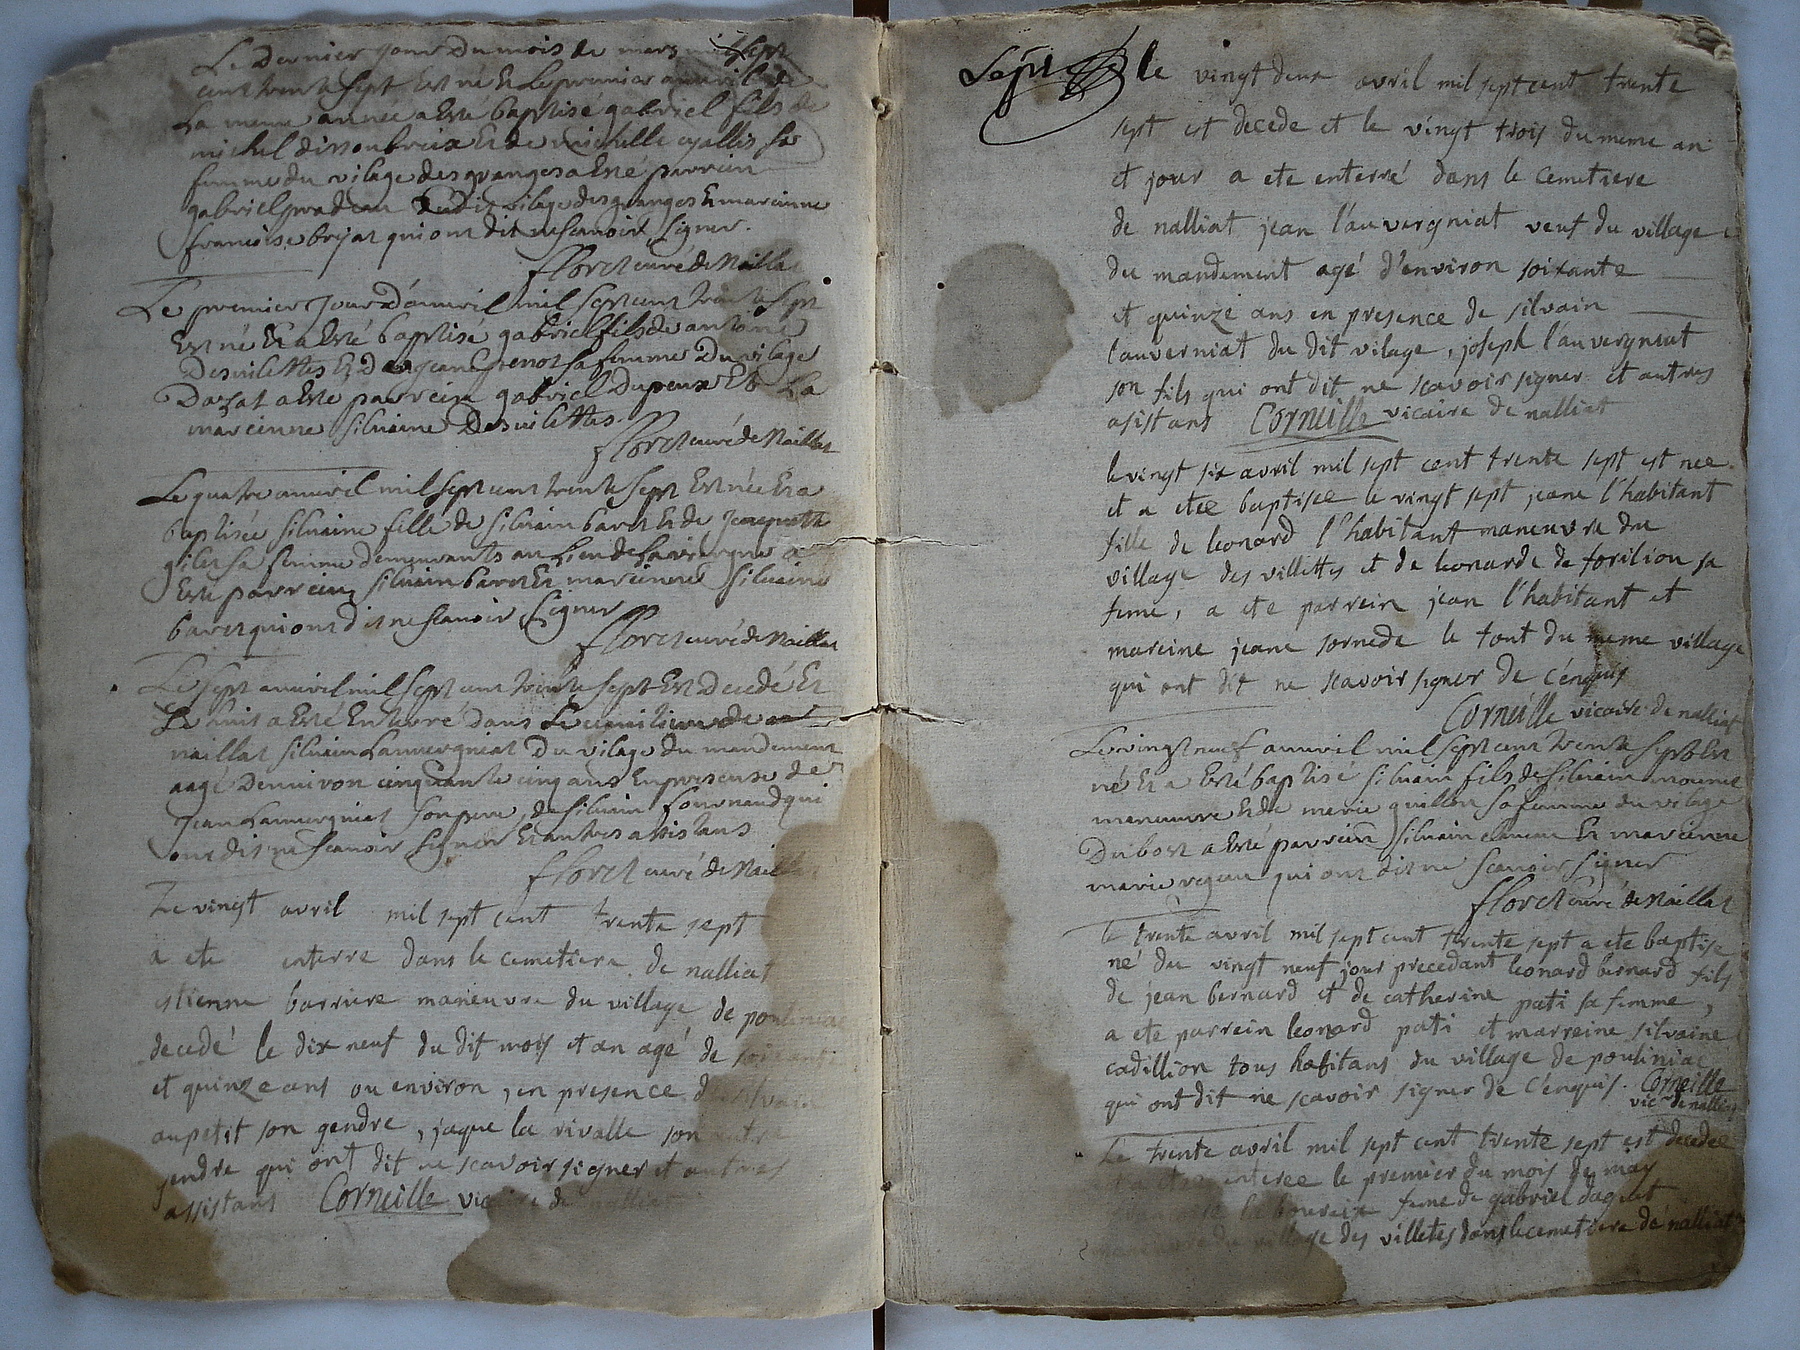 Le Dernier jour Du mois de mars mil Sept
cent trente sept Est né Et Le premier auvril de
La meme année a Esté baptisé gabriel fils de
michel dissoubreix Et de michelle syallis sa
femme du vilage des granges a Esté parrein
gabriel pradeau Dudit vilage des granges Et mareinne
francoise brejat qui ont dit ne scauoir signer.
fforest curé de Naillat
Le premier Jour D'auuril mil sept cent trente sept
Est né Et a Esté baptisé gabriel fils de antoine
Desuilettes Et De jeanne genot sa femme Du vilage
Dazat a Esté parrein gabriel Dupeux Et La
mareinne siluaine Desuilettes.
fforest curé de Naillat
Le quatre auuril mil sept cent trente sept Est née Et a
baptisée siluaine fille de siluain baret Et de Jacquette
giles sa femme demeurants au Lieu de Lavilaugne a
Esté parrein siluain baret Et mareinne siluaine
baret qui ont dit ne scauoir signer
fforest curé de Naillat
Le sept auuril mil sept cent trente sept Est Decedé Et
Le huit a Esté Enterré dans Le cemitiere de
naillat siluain Lauuergniat Du vilage du mandement
aagé Denuiron cinquante cinq ans En presense de
Jean Lauuergniat son pere, de siluain fournaud qui
ont dit ne scauoir signer Et autres assistans
fforest curé de Naillat
Le vingt avril mil sept cent trente sept
a ete enterre dans le cemetiere de nalliat
estienne barriere maneuvre du village de pouliniac
decedé le dix neuf du dit mois et an agé de soixante
et quinze ans ou environ, en presence de silvain
aupetit son gendre, jaque la rivalle son autre
jendre qui ont dit ne scavoir signer et autres
assistans Corneille vicaire de nalliat
Sept le vingt deux avril mil sept cent trente
sept est decede et le vingt trois du meme an
et jour a ete enterré dans le cemetiere
de nalliat jean l'auvergniat veuf du village
du mandement agé d'environ soixante
et quinze ans en presence de silvain
l'auverniat du dit vilage, joseph l'auvergniat
son fils qui ont dit ne scavoir signer et autres
asistans Corneille vicaire de nalliat
le vingt six avril mil sept cent trente sept est nee
et a etee baptisee le vingt sept jeane l'habitant
fille de leonard l'habitant maneuvre du
village des villettes et de leonarde de forilion sa
feme, a ete parrein jean l'habitant et
mareine jeane sornede le tout du meme village
qui ont dit ne scavoir signer de c'enquis
Corneille vicaire de nalliat
Le vingt neuf auuril mil sept cent trente sept Est
né Et a Esté baptisé siluain fils de siluain
maneuure Et de marie guillon sa femme du vilage
Dubost a Esté parrein siluain Et mareinne
marie qui ont dit ne scauoir signer
fforest curé de Naillat
le trente avril mil sept cent trente sept a ete baptise
né du vingt neuf jour precedant leonard bernard fils
de jean bernard et de catherine pati sa femme,
a ete parrein leonard pati et marreine silvaine
cadillion tous habitans du village de pouliniac
qui ont dit ne scavoir signer de c'enquis. Corneille
vic. de nalliat
Le trente avril mil sept cent trente sept est decedee
enteree le premier du mois de may
feme de gabriel daguet
du village des villetes dans le cemetiere de nalliat